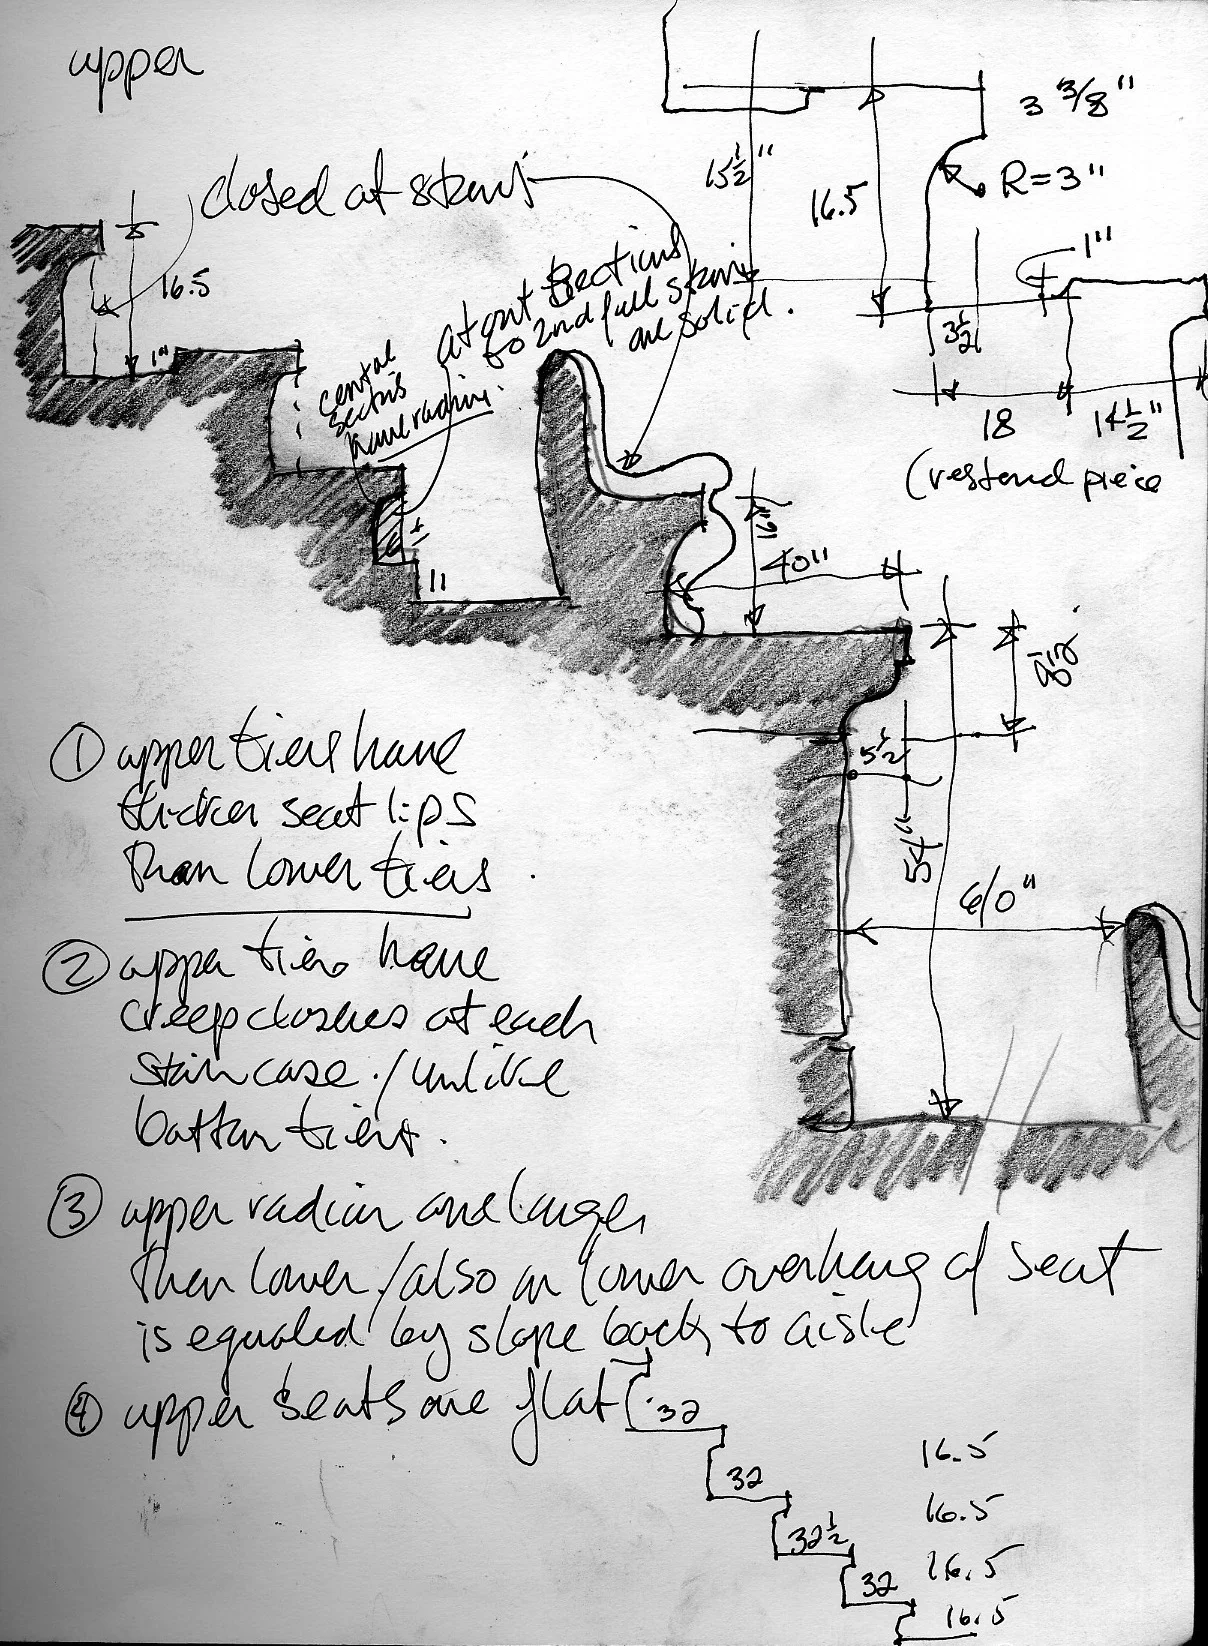 upper
3 3/8"
15 1/2"
16.5
R=3"
closed at stairs
1"
16.5
at out sections
to 2nd full stairs
are solid.
3 1/2
1"
central
sections
have radius.
18
14 1/2"
(restored piece
16"
6
40"
11
8 1/2
5 1/2
54"
6/0"
① upper tiers have
thicker seat lips
than lower tiers.
② upper tiers have
creep closures at each
staircase./unlike
bottom tiers.
③ upper radius are larger
than lower/also on lower overhang of seat
is equaled by slope back to aisle
④ upper seats are flat
32
32
32 1/2
32
16.5
16.5
16.5
16.5